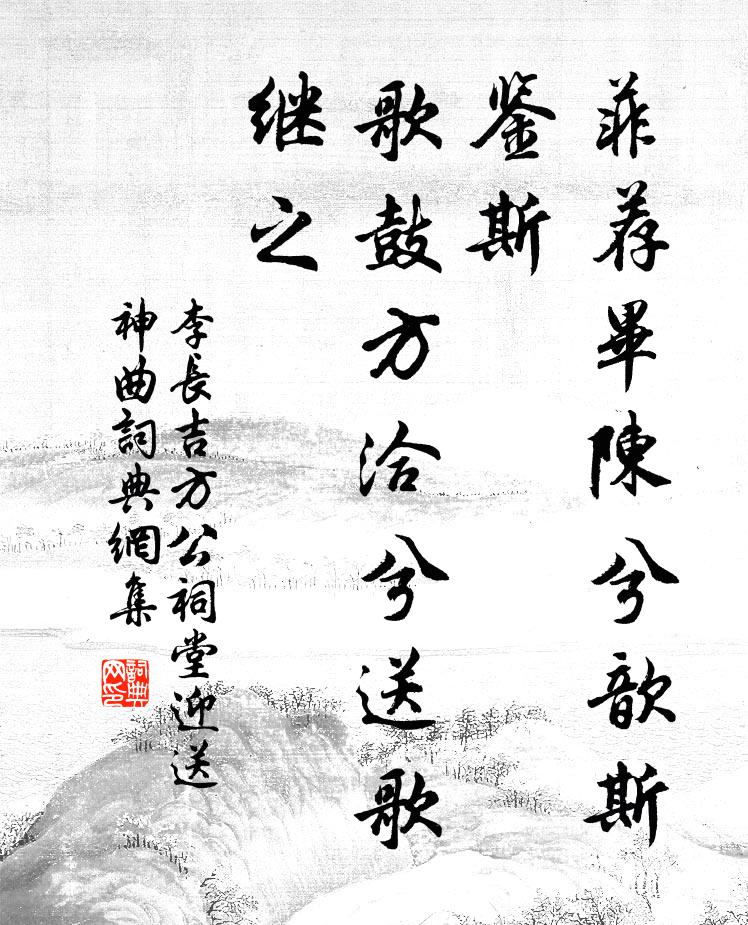 菲荐畢陳兮歆斯
鉴斯
歌鼓方洽兮送歌
继之
李長吉方公祠堂迎送
神曲詞典網集
詞典
网印